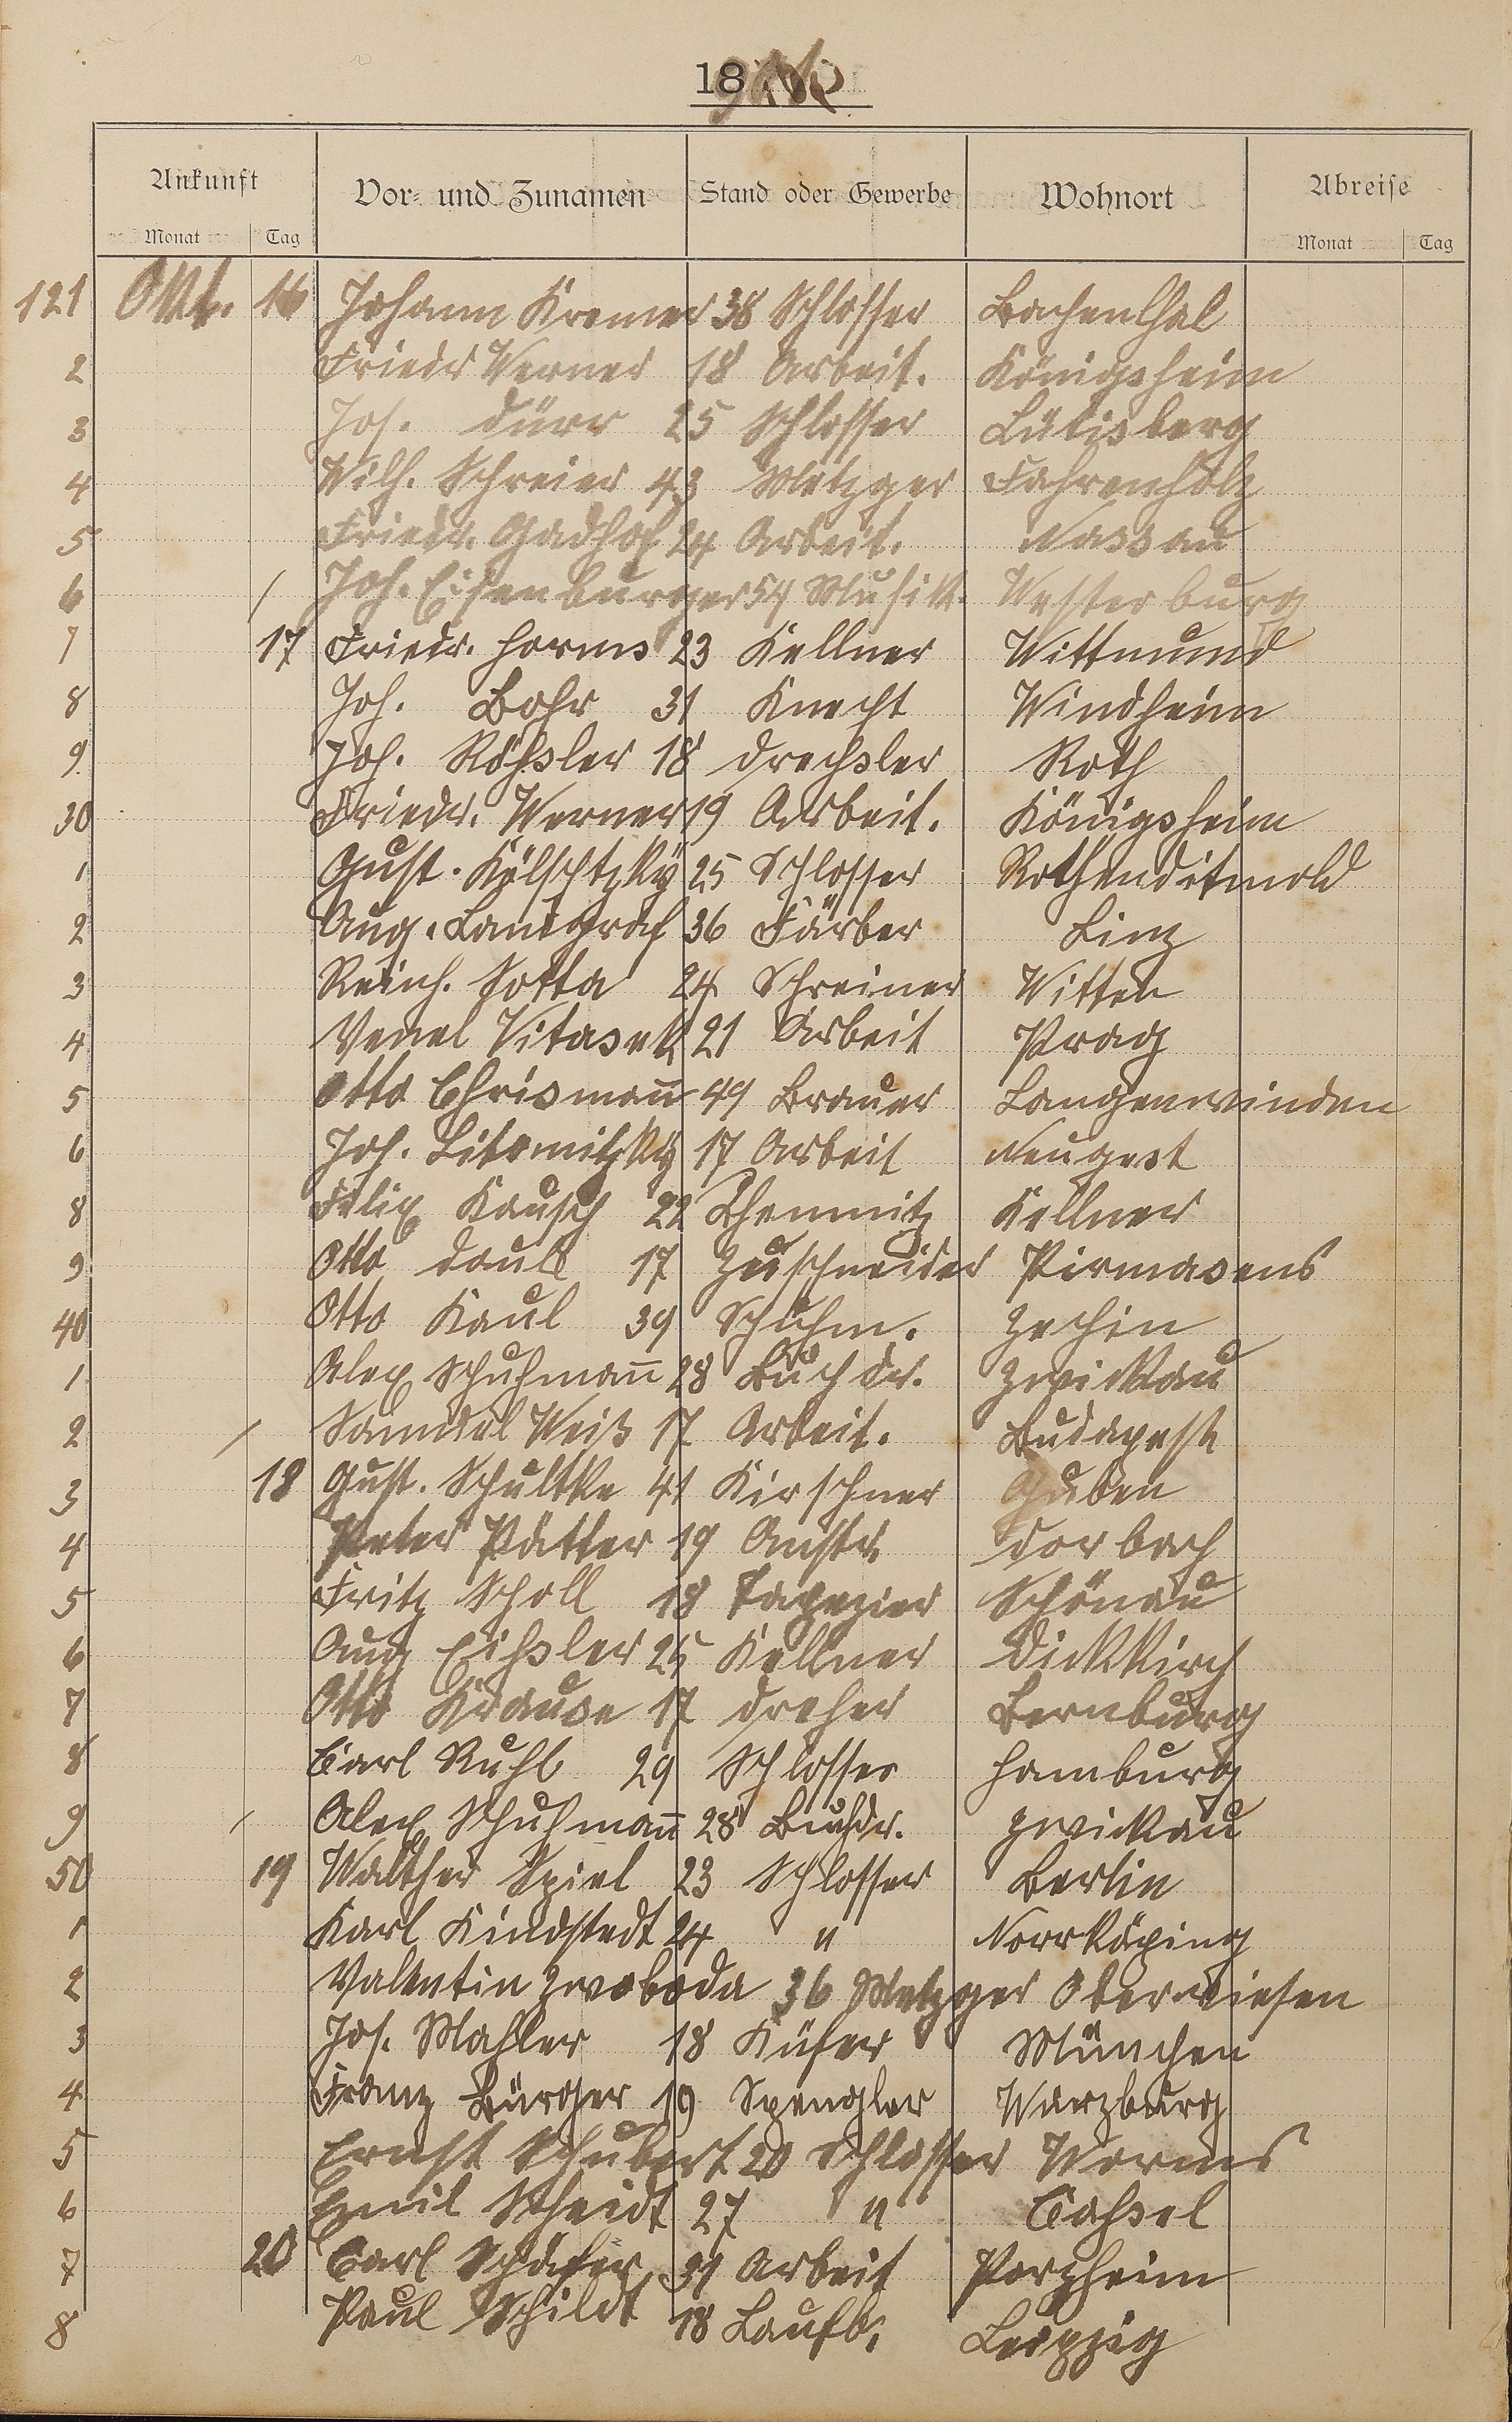 18
Ankunft Vor- und Zunamen Stand oder Gewerbe Wohnort Abreise
Monat Tag Monat Tag
121 Okt. 16 Johann Kremer 38 Schlosser Bachenthal
2 Friedr Werner 18 Arbeit. Königsheim
3 Jos. Dürr 25 Schlosser Lülisberg
4 Wilh. Schreier 43 Metzger Fahrenholz
5 Friedr. Gadhof 24 Arbeit. Nassau
6 Joh. Eisenburger 54 Musik. Westerburg
7 17 Friedr. Harms 23 Kellner Wittmund
8 Joh. Bohr 31 Knecht Windheim
9 Joh. Rößsler 18 Drechsler Roth
30 Friedr. Werner 19 Arbeit. Königsheim
1 Gust. 25 Schlosser Rothenditmold
2 Aug. Landgraf 36 Färber Linz
3 Reinh. Sotta 24 Schreiner Witten
4 Venel Vitasek 21 Arbeit Prag
5 Otto Chrismañ 49 Brauer Langenwinden
6 Joh. Litomitzky 17 Arbeit Neugest
8 Felix Kausch 22 Chemnitz Kellner
9 Otto Daub 17 Zuschneider Pirmasens
40 Otto Kaul 39 Schuhm. Zechin
1 Alex Schuhmañ 28 Buchdr. Zwickau
2 Samuel Weiß 17 Arbeit. Budapest
3 18 Gust. Schultke 41 Kirschner Guben
4 Peter Pätter 19 Anstr. Dorbach
5 Fritz Scholl 18 Tapezier Schönau
6 Aug Eißsler 25 Kellner Dickkirch
7 Otto Krause 17 Dreher Bernburg
8 Carl Ruhl 29 Schlosser Hamburg
9 Alex Schuhmañ 28 Buchdr. Zwickau
50 19 Walther Spiel 23 Schlosser Berlin
1 Karl Kindstedt 24 " Norrköping
2 Valentin Zwoboda 36 Metzger Oberwiesen
3 Jos. Mahler 18 Küfer München
4 Franz Bürger 19 Spengler Würzburg
5 Ernst Schubert 20 Schlosser Worms
6 Emil Scheidt 27 " Caßsel
7 20 Carl Schäfer 31 Arbeit Porzheim
8 Paul Schildt 18 Laufb. Leipzig